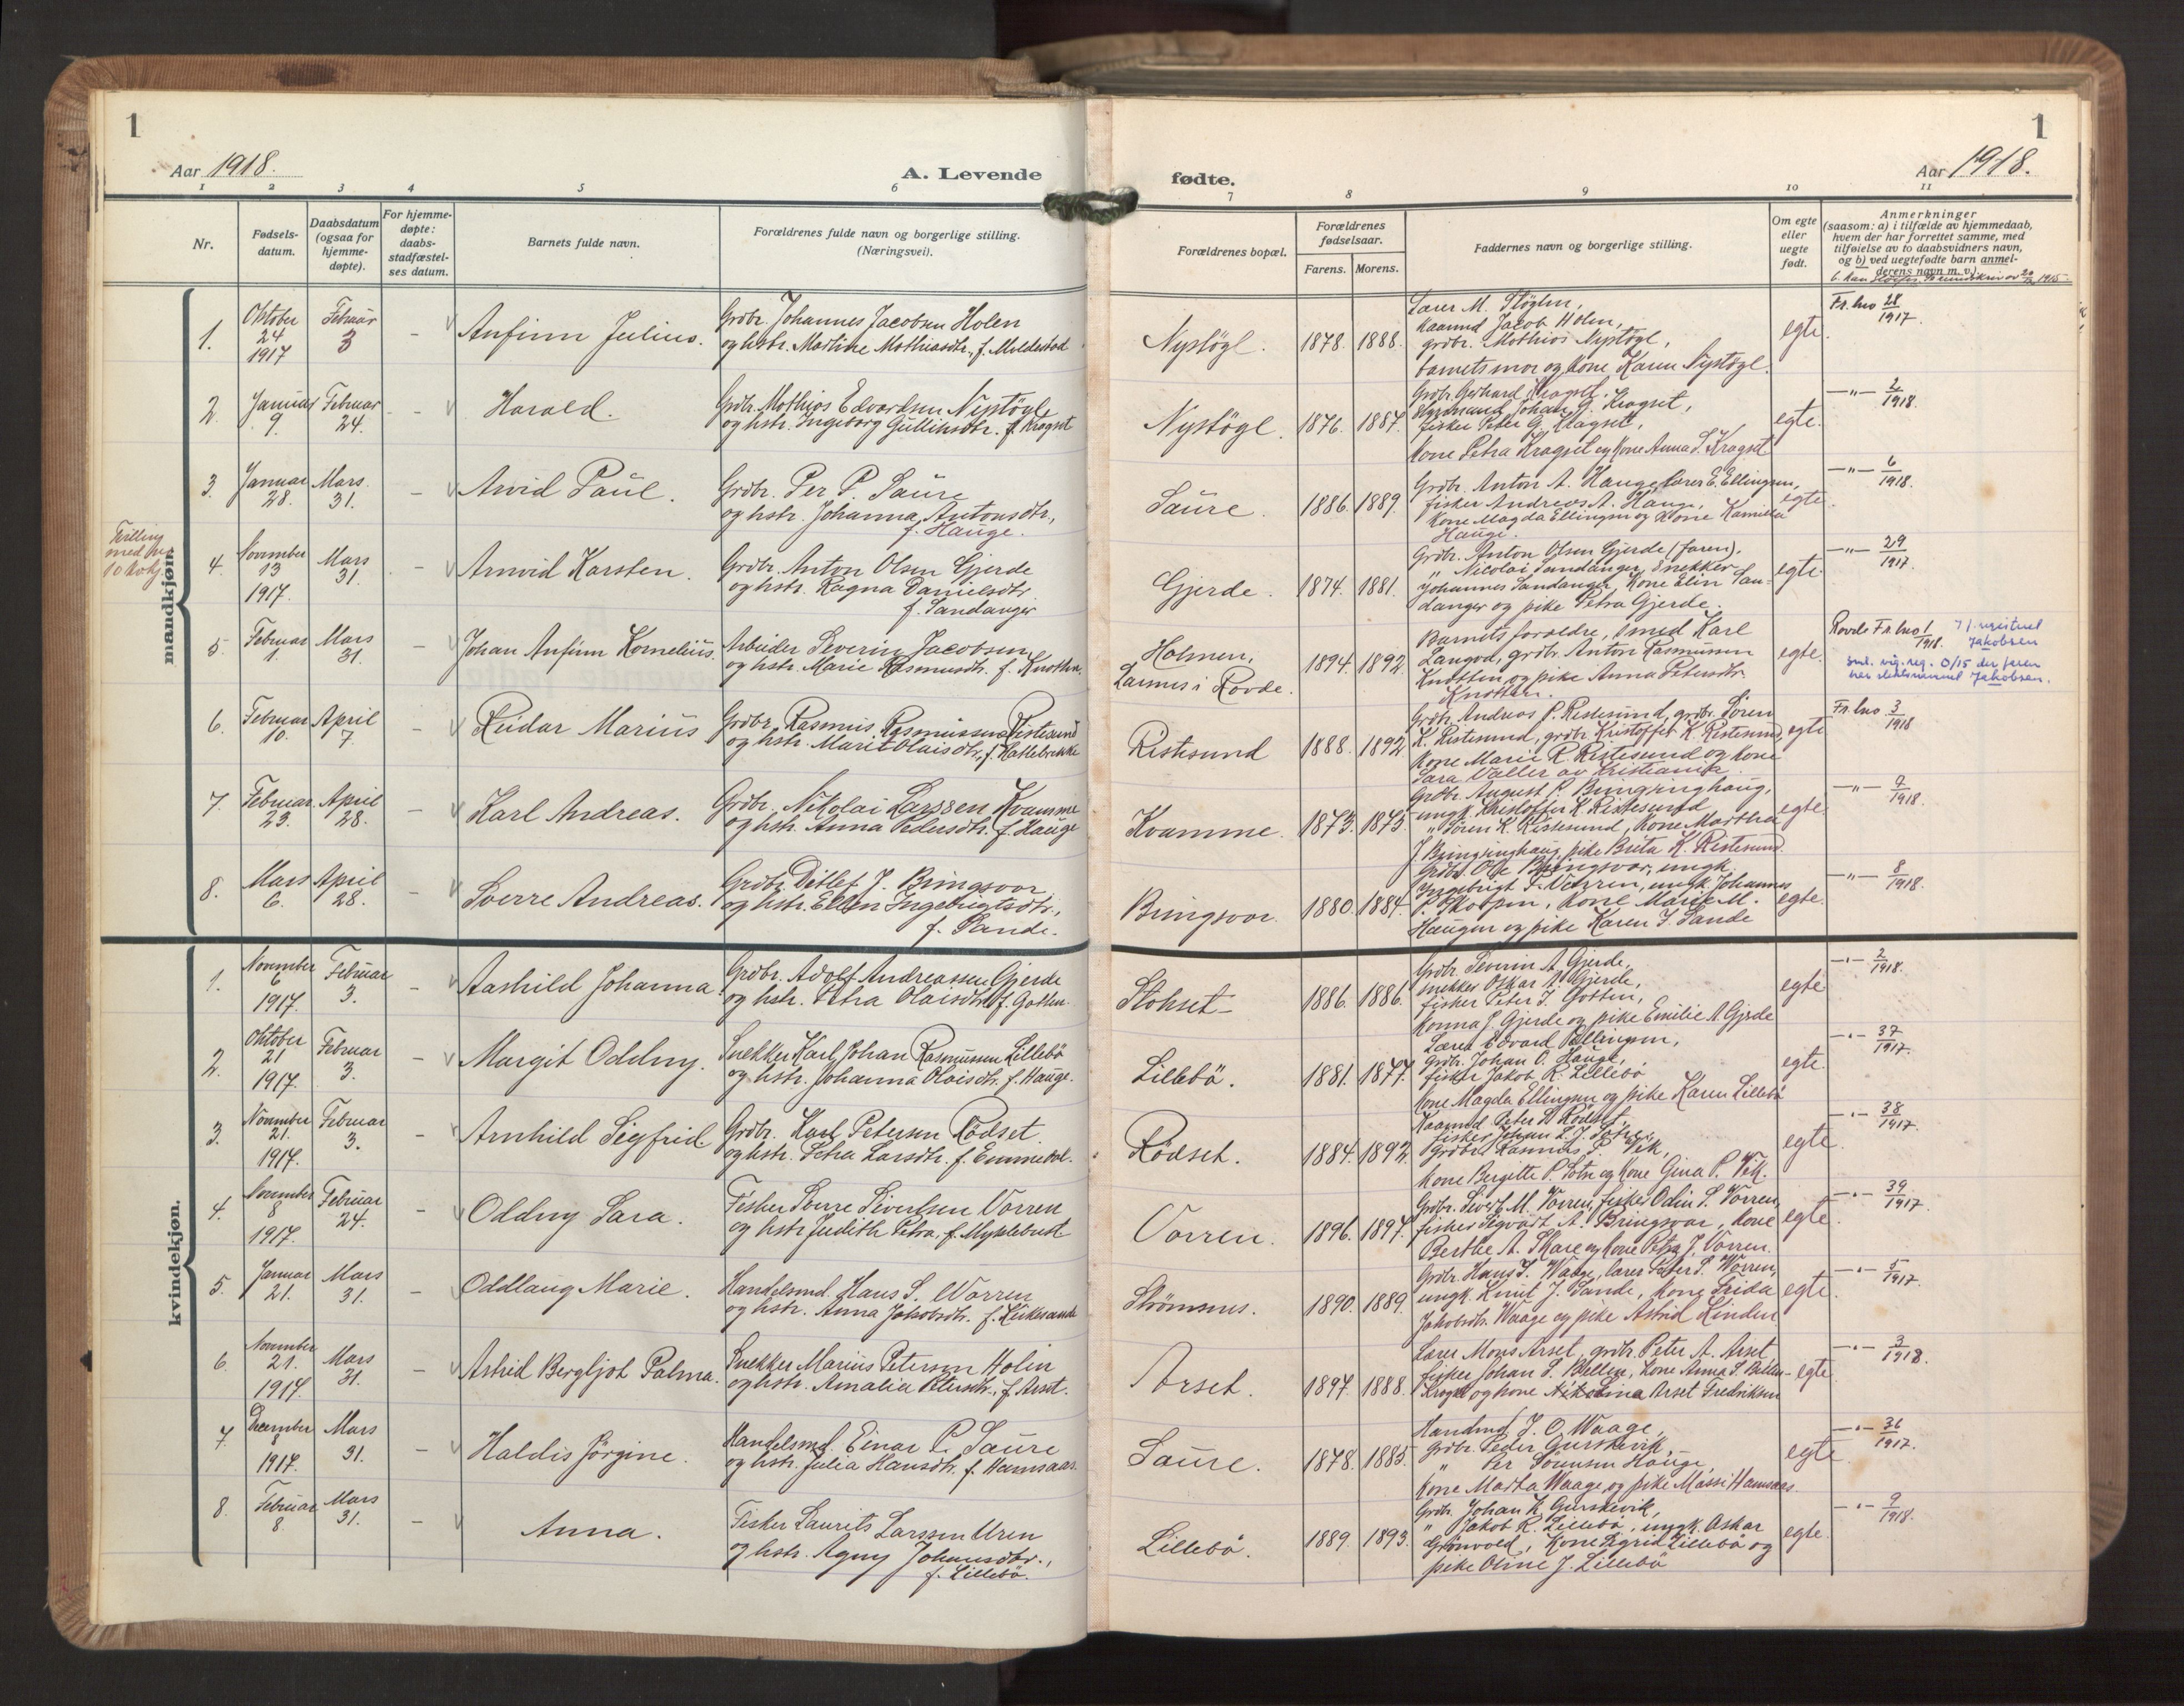 1
Aar 1918.
A. Levende
1 2 3 4 5 6
Nr.
Fødsels-
datum.
Daabsdatum
(ogsaa for
hjemme-
døpte).
For hjemme-
døpte:
daabs-
stadfæstel-
ses datum.
Barnets fulde navn.
Forældrenes fulde navn og borgerlige stilling.
(Næringsvei).
mandkjøn.
1. Oktober 24 1917 Februar 3 - Anfinn Julius.
Grdbr. Johannes Jacobsen Holen
og hstr. Martine Mathiasdtr., f. Meldestad
2. Januar 9. Februar 24. - Harald.
Grdbr. Mathias Edvardsen Nystøyl
og hstr. Ingeborg Gulliksdtr. f. Kragset
3. Januar 28. Mars. 31. - Arvid Paul.
Grdbr. Per P. Saure
og hstr. Johanna Antonsdtr,
f. Hauge.
Tvilling
med no
10 kvkj
4. November 13 1917. Mars 31. - Arnvid Karsten.
Grdbr. Anton Olsen Gjerde
og hstr. Ragna Danielsdtr.
f. Sandanger
5. Februar 1. Mars 31. - Johan Anfinn Kornelius.
Arbeider Severin Jacobsen
og hstr. Marie Rasmusdtr. f. Knotten.
6. Februar 10. April 7. - Reidar Marius
Grdbr. Rasmus Rasmussen Ristesund
og hstr. Marit Olaisdtr., f. Hatlebrekke
7. Februar 23. April 28. - Karl Andreas.
Grdbr. Nikolai Larssen Kvamme
og hstr. Anna Pedersdtr. f. Hauge
8. Mars 6. April 28. - Sverre Andreas.
Grdbr. Ditlef J. Bringsvor
og hstr. Ellen Ingebrigtsdtr.,
f. Sande.
kvindekjøn.
1. November 6 1917. Februar 3. - Aashild Johanna.
Grdbr. Adolf Andreassen Gjerde
og hstr. Petra Olaisdtr. f. Gotten.
2. Oktober 21 1917. Februar 3. - Margit Oddny.
Snekker Karl Johan Rasmussen Lillebö
og hstr. Johanna Olaisdtr. f. Hauge.
3. November 21. 1917. Februar 3. - Arnhild Sigfrid.
Grdbr. Karl Petersen Rödset.
og hstr. Petra Larsdtr. f. Emmevol.
4. November 8 1917. Februar 24. - Oddny Sara.
Fisker Sverre Sivertsen Vorren
og hstr. Judith Petra, f. Myklebust
5. Januar 21. Mars 31. - Oddlaug Marie.
Handelsmd. Hans S. Worren
og hstr. Anna Jakobsdtr. f. Leikesande
6. November 21. 1917. Mars 31. - Astrid Bergljot Palma.
Snekker Marius Petersen Holin
og hstr. Amalia Petersdtr., f. Arset.
7. December 8 1917. Mars 31. - Haldis Jørgine.
Handelsmd. Einar P. Saure
og hstr. Julia Hansdtr. f. Hamsaas.
8. Februar 8. Mars 31. - Anna.
Fisker Laurits Larssen Uren
og hstr. Agny Johansdtr.,
f. Lillebö.
1
Aar 1918.
fødte.
7 8 9 10 11
Forældrenes bopæl.
Forældrenes
fødselsaar.
Farens. Morens.
Faddernes navn og borgerlige stilling.
Om egte
eller
uegte
født.
Anmerkninger
(saasom: a) i tilfælde av hjemmedaab,
hvem der har forrettet samme, med
tilføielse av to daabsvidners navn,
og b) ved uegtefødte barn anmel-
derens navn m. v.).
Nystøyl. 1878. 1888.
Lærer M. Støylen,
Kaarmd Jacob Holen,
grdbr. Mathias Nystøyl,
barnets mor og kone Karen Nystøyl.
egte. Fr. lno 28/1917.
Nystøyl. 1876. 1887.
Grdbr. Gerhard Kragset.
Styrmand Johan G. Kragset,
fisker Peter G. Kragset,
Kone Petra Kragset og kone Anna S. Kragset
egte. -"- 2/1918.
Saure. 1886. 1889.
Grdbr. Anton A. Hauge, lærer E. Ellingsen,
fisker Andreas A. Hauge,
Kone Magda Ellingsen og kone Kamilla
Hauge.
egte. -"- 6/1918.
Gjerde. 1874. 1881.
Grdbr. Anton Olsen Gjerde (faren),
" Nicolai Sandanger, Snekker
Johannes Sandanger, Kone Elin San-
danger og pike Petra Gjerde.
egte. -"- 29/1917.
Holmen,
Larsnes i Rovde. 1894. 1892.
Barnets forældre, smed Karl
Langva, grdbr. Anton Rasmussen
Knotten og pike Anna Petersdtr.
Knotten.
egte. Rovde Fr. lno 1/1918.
Jakobsen
Jakobsen.
Ristesund 1888. 1892.
Grdbr. Andreas P. Ristesund, grdbr. Søren
K. Ristesund, grdbr. Kristoffer K. Ristesund,
Kone Marie R. Ristesund og kone
Sara Valler av Kristiania.
egte Fr. lno 3/1918
Kvamme. 1873. 1875.
Grdbr. August P. Bringsinghaug,
ungk. Kristoffer K. Ristesund
" Søren K. Ristesund, Kone Martha
J. Bringsinghaug, pike Brita K. Ristesund.
egte. -"- 7/1918.
Bringsvor. 1880. 1884.
Grdbr. Ole Bringsvor, ungk.
Ingebrigt T. Vorren, ungk. Johannes
P. Skotten, Kone Marie M.
Haugen og pike Karen J. Sande
egte. -"- 8/1918.
Stokset. 1886. 1886.
Grdbr. Severin A. Gjerde,
snekker Oskar A. Gjerde,
fisker Peter J. Gotten,
Konna J. Gjerde og pike Emilie A. Gjerde
egte -"- 2/1918.
Lillebö. 1881. 1877.
Lærer Edvard Ellingsen,
Grdbr. Johan O. Hauge,
fisker Jakob R. Lillebö
Kone Magda Ellingsen og pike Karen Lillebö
egte. -"- 37/1917.
Rödset. 1884. 1892.
Kaarmd Peter Rödset,
Grdbr. Rasmus P. Vik,
Kone Bergitte P. Sætre og kone Gina P. Vik.
egte. -"- 38/1917.
Vorren. 1896. 1897.
Grdbr. Sivert M. Vorren, fisker Odin S. Vorren,
fisker Sigvart A. Bringsvor, kone
Berthe A. Skare og kone Petra J. Vorren.
egte. -"- 39/1917.
Strömsnes. 1890. 1889.
Grdbr. Hans J. Waage, lærer Peter S. Worren,
ungk. Knut J. Sande, kone Frida
Jakobsdtr. Waage og pike Astrid Kinden
egte. -"- 5/1917.
Arset. 1897. 1888.
Lærer Mons Arset, grdbr. Peter A. Arset,
fisker Johan S. kone Anna S.
Kragset og kone Nikolina Arset Fredriksen
egte. -"- 3/1918.
Saure. 1878. 1885.
Handmd. J. O. Waage,
Grdbr. Peder Gurskevik,
" Per Sørensen Hauge,
Kone Marta Waage og pike Massi Hamsaas.
egte. -"- 36/1917.
Lillebö. 1889. 1893.
Grdbr. Johan K. Gurskevik,
" Jakob R. Lillebö, ungk. Oskar
Grönvold, Kone Sigrid Lillebö og
pike Oline J. Lillebö
egte. -"- 9/1918.